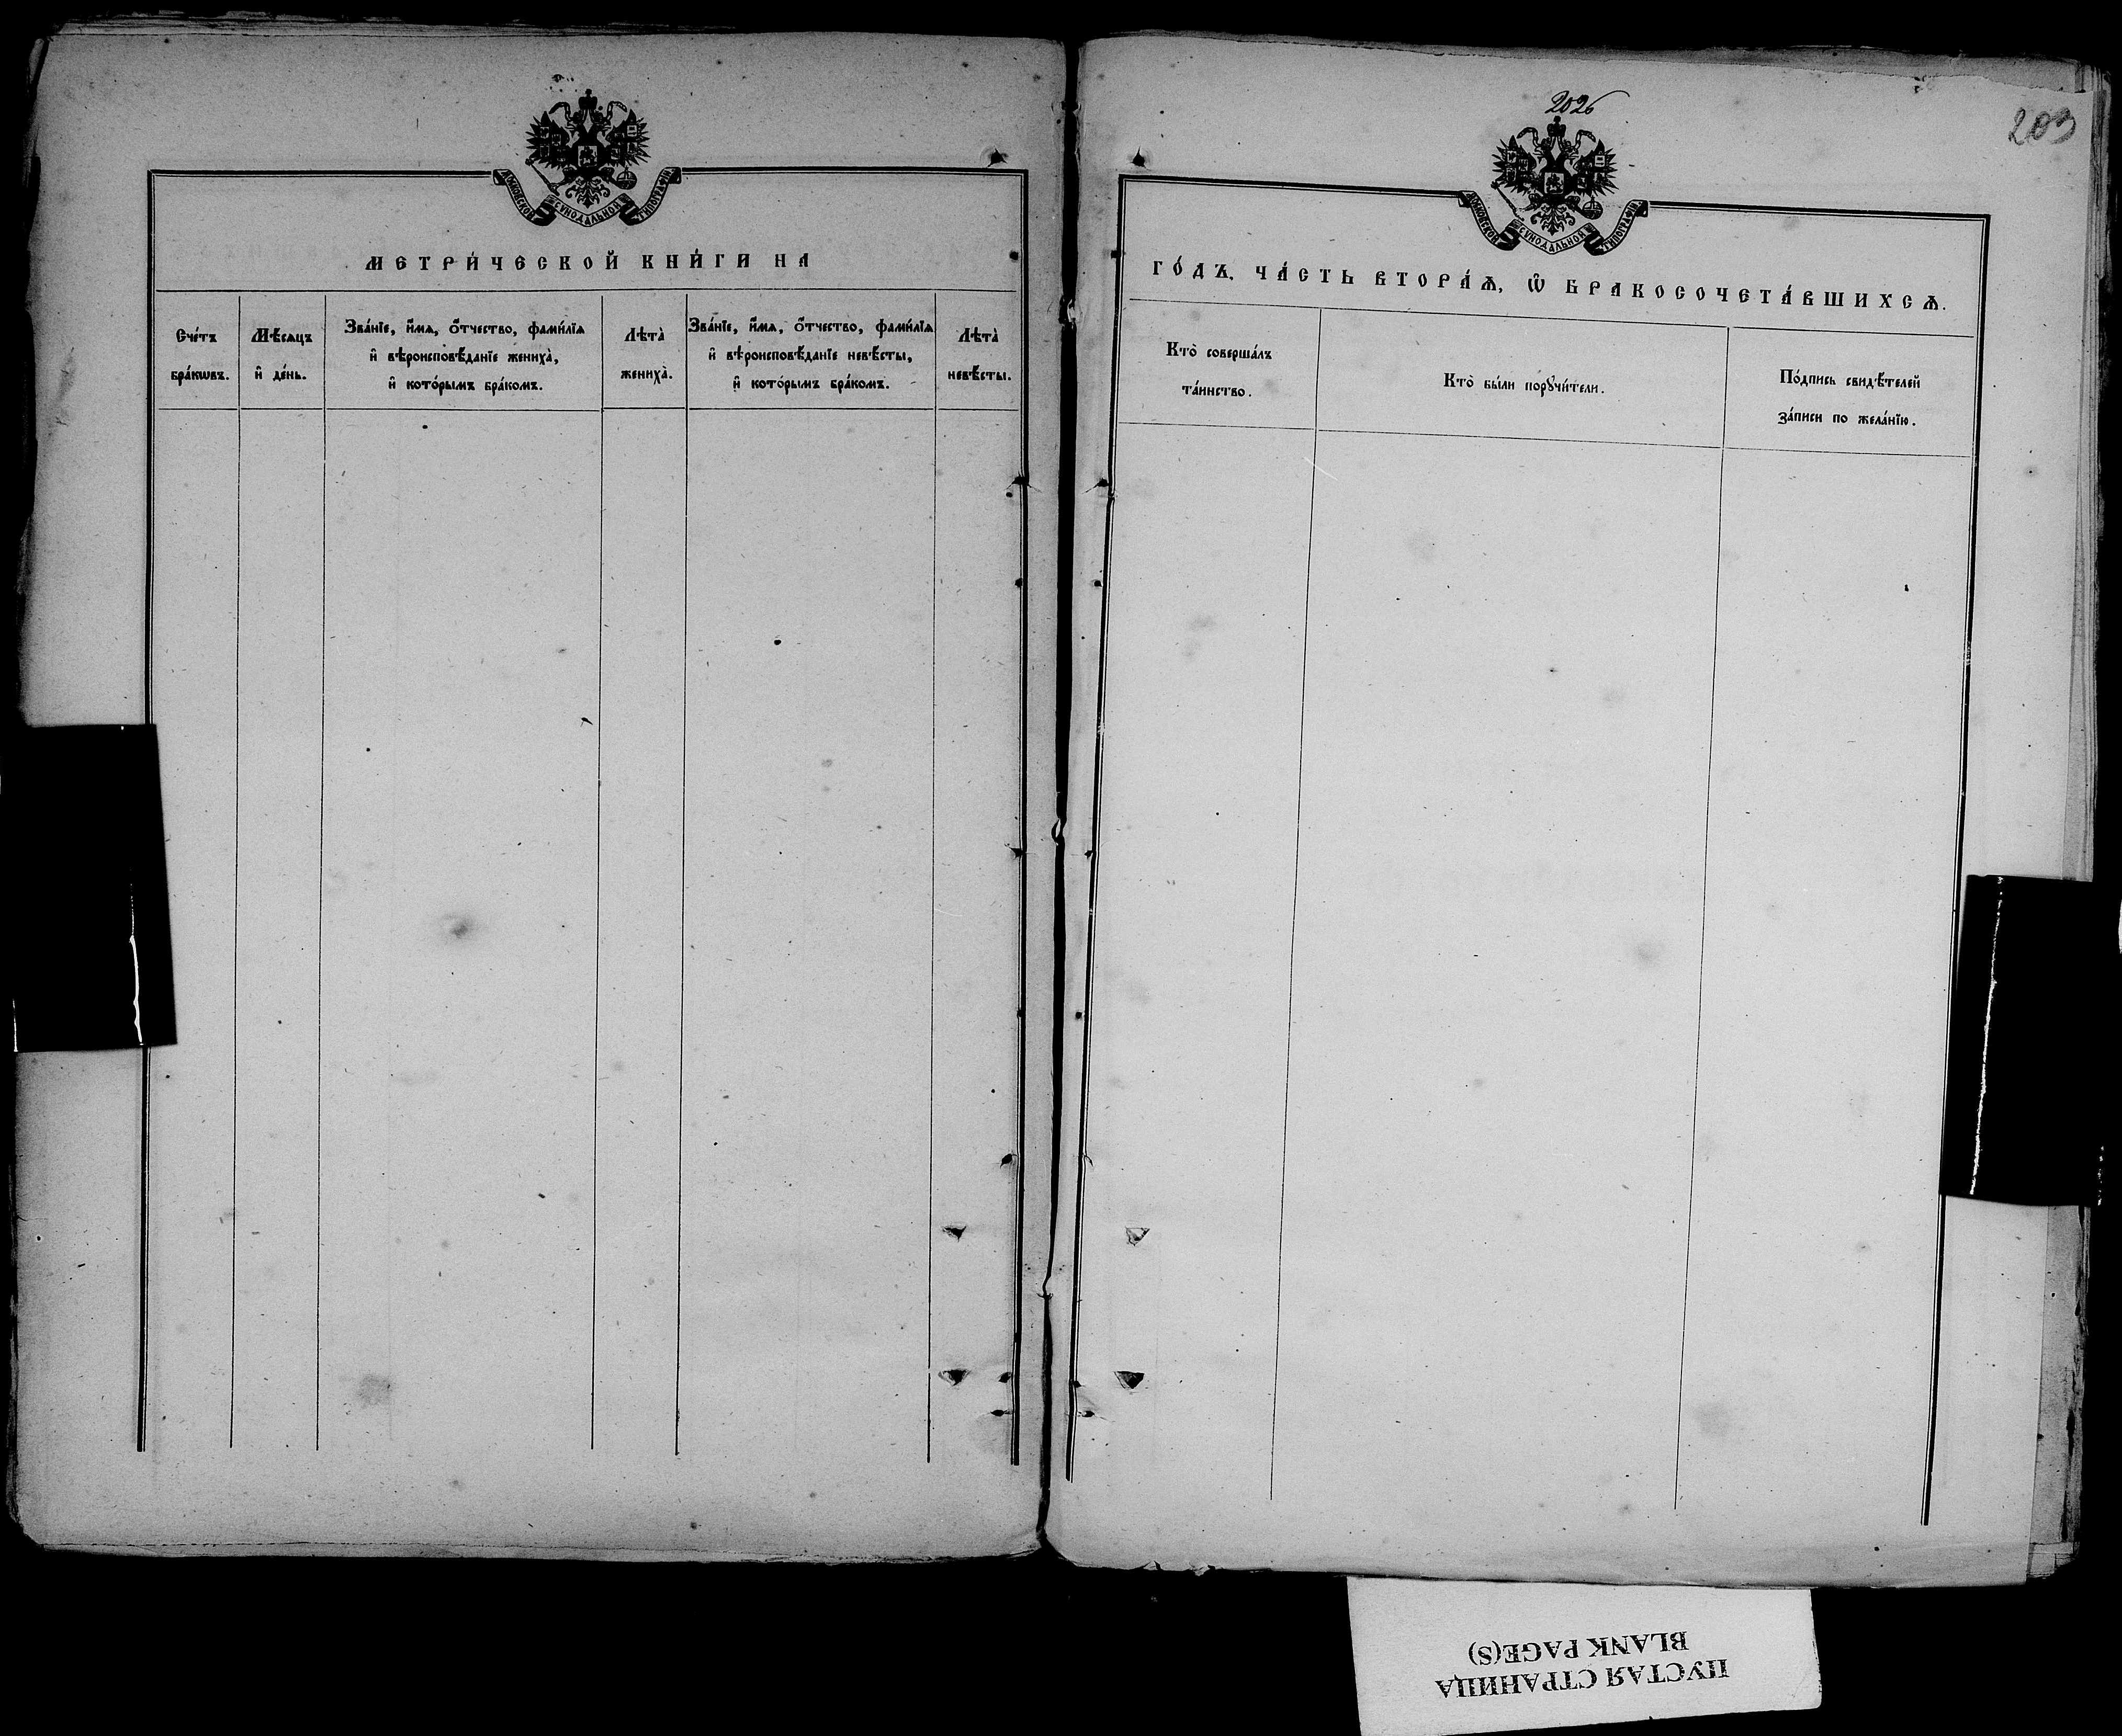 МОСКОВСКОЙ СѴНОДАЛЬНОЙ ТИПОГРАФІИ
МЕТРИ́ЧЕСКОЙ КНИ́ГИ НА
Сче́тъ
бра́кѡвъ.
Мѣ́сяцъ
и҆ де́нь.
Зва́нїе, и҆́мѧ, ѻ҆́тчество, фамѝлїѧ
и҆ вѣроисповѣ́данїе женихà,
и҆ кото́рымъ бра́комъ.
Лѣтà
женихà.
Зва́нїе, и҆́мѧ, ѻ҆́тчество, фамѝлїѧ
и҆ вѣроисповѣ́данїе невѣ́сты,
и҆ кото́рымъ бра́комъ.
Лѣтà
невѣ́сты.
2026
203
МОСКОВСКОЙ СѴНОДАЛЬНОЙ ТИПОГРАФІИ
ГО́ДЪ, ЧА́СТЬ ВТОРА́Ѧ, Ѡ҆ БРАКОСОЧЕТА́ВШИХСѦ.
Ктò соверша́лъ
та́инство.
Ктò бы́ли порꙋчи́тели.
По́дпись свидѣ́телей
за́писи по жела́нїю.
ПУСТАЯ СТРАНИЦА
BLANK PAGE(S)